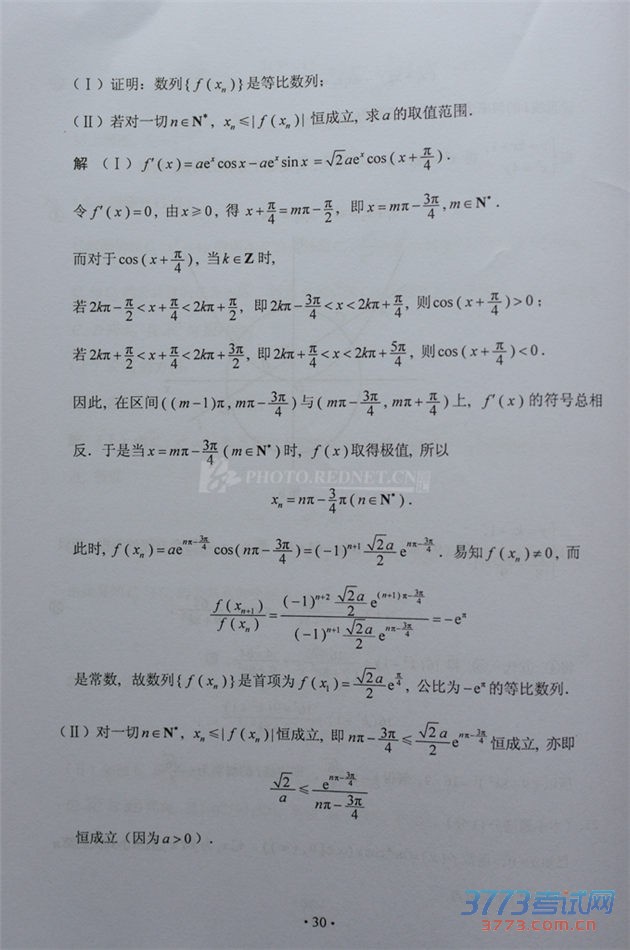 (Ⅰ)证明:数列{f(xₙ)}是等比数列;
(Ⅱ)若对一切n∈N*, xₙ≤|f(xₙ)|恒成立,求a的取值范围.
解 (Ⅰ) f′(x)=aeˣcosx−aeˣsinx=√2aeˣcos(x+π/4).
令f′(x)=0, 由x≥0, 得 x+π/4=mπ−π/2, 即x=mπ−3π/4, m∈N*.
而对于cos(x+π/4), 当k∈Z时,
若2kπ−π/2<x+π/4<2kπ+π/2, 即2kπ−3π/4<x<2kπ+π/4, 则cos(x+π/4)>0;
若2kπ+π/2<x+π/4<2kπ+3π/2, 即2kπ+π/4<x<2kπ+5π/4, 则cos(x+π/4)<0.
因此, 在区间((m−1)π, mπ−3π/4)与(mπ−3π/4, mπ+π/4)上, f′(x)的符号总相
反. 于是当x=mπ−3π/4(m∈N*)时, f(x)取得极值, 所以
PHOTO.REDNET.CN
xₙ=nπ−3/4π(n∈N*).
此时, f(xₙ)=ae^(nπ−3π/4)cos(nπ−3π/4)=(−1)^(n+1) √2a/2 e^(nπ−3π/4). 易知f(xₙ)≠0, 而
f(xₙ₊₁)/f(xₙ)=[(−1)^(n+2) √2a/2 e^((n+1)π−3π/4)]/[(−1)^(n+1) √2a/2 e^(nπ−3π/4)]=−e^π
是常数, 故数列{f(xₙ)}是首项为f(x₁)=√2a/2 e^(π/4), 公比为−e^π的等比数列.
(Ⅱ)对一切n∈N*, xₙ≤|f(xₙ)|恒成立, 即nπ−3π/4≤√2a/2 e^(nπ−3π/4)恒成立, 亦即
√2/a≤e^(nπ−3π/4)/(nπ−3π/4)
恒成立(因为a>0).
·30·
3773考试网
3773.com.cn